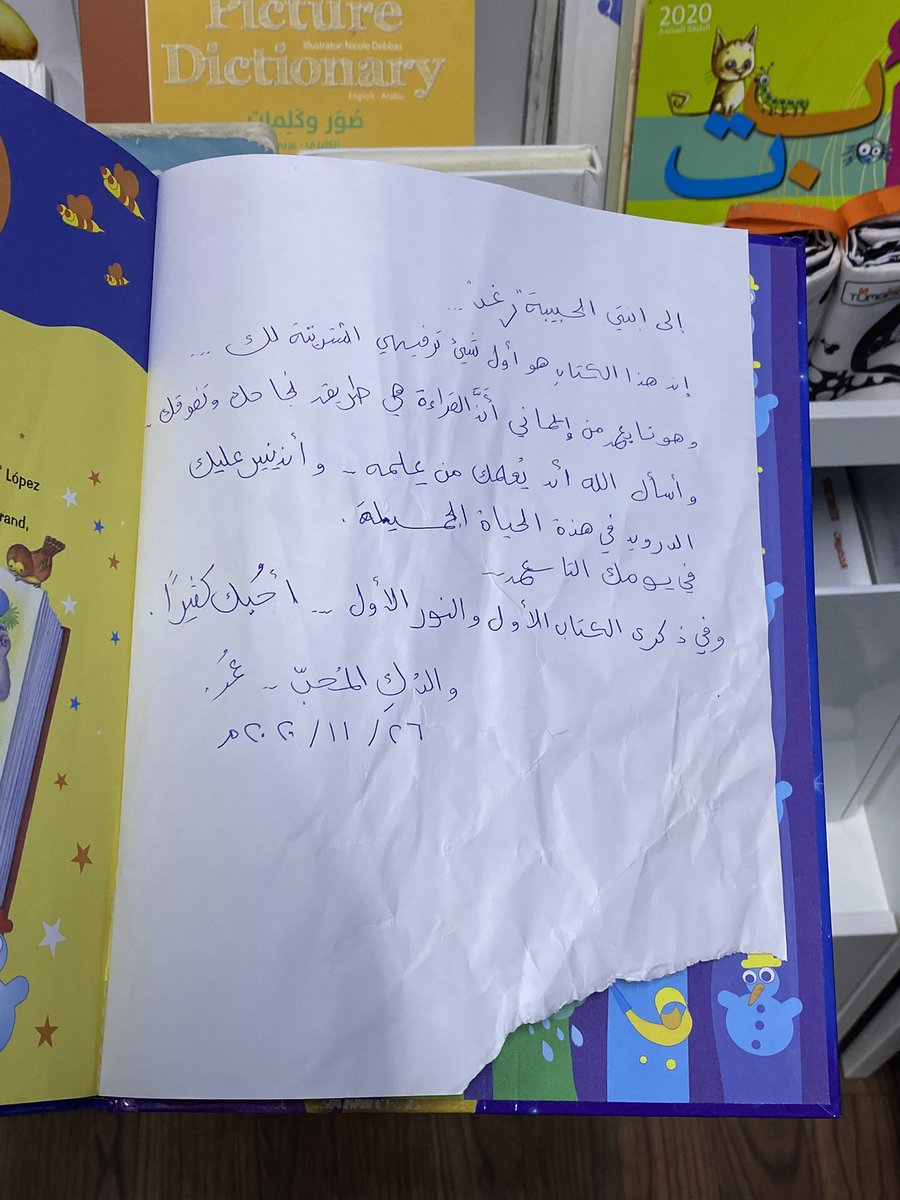 Picture
Dictionary
Illustrator: Nicole Debbas
English - Arabic
صُوَر وكَلِمات
2020
الطبعة السابعة
ب
ت
López
rand,
إلى ابنتي الحبيبة "رغد" ...
إن هذا الكتاب هو أول شيئ ترفيهي اشتريته لك ...
وهو نابع من إيماني أنَّ القراءة هي طريق نجاحك وتفوقك ..
وأسأل الله أن يُعلمك من علمه .. وأن ييسر عليك
الدروب في هذة الحياة الجميلة .
في يومك التاسع ..
وفي ذكرى الكتاب الأول والنور الأول ... أحُبك كثيرًا .
والدُكِ المُحبّ .. عمُر
٢٦ / ١١ / ٢٠٢٠م